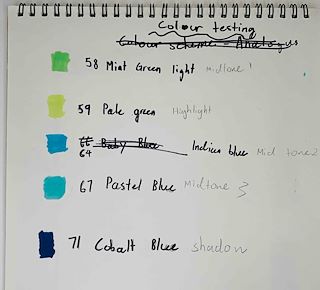 Colour testing
Colour scheme - Analogus
58 Mint Green light midtone 1
59 Pale green Highlight
66 Baby Blue
64 Indian blue Mid tone 2
67 Pastel Blue Midtone 3
71 Cobalt Blue shadow